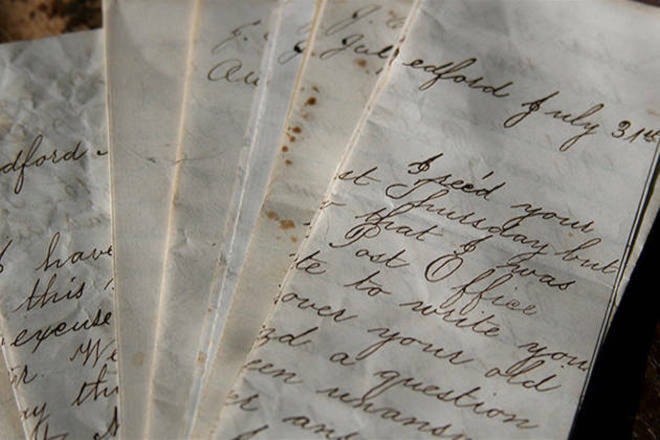 dford
I have
this
excuse
. We
y th
J.
Au
J.
Jul
edford July 31st
I rec'd your
st Thursday but
that I was
Post Office
te to write you
over your old
d a question
een unans
er an